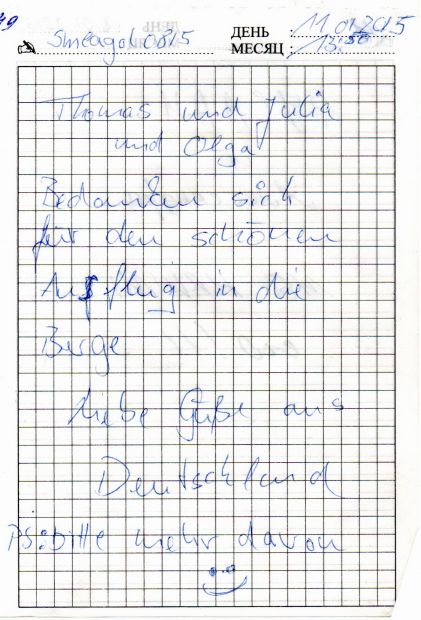 49
Smeagol0815
ДЕНЬ : 11.01.2015
МЕСЯЦ : 13:50
Thomas und Julia
und Olga
Bedanken sich
für den schönen
Ausflug in die
Berge
Liebe Grüße aus
Deutschland
PS: Bitte mehr davon